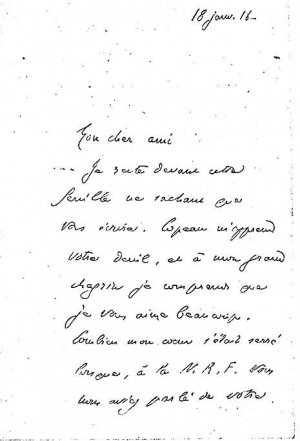 18 janv. 16
Mon cher ami
Je reste devant cette
feuille ne sachant que
vous écrire. Copeau m'apprend
votre deuil, et à mon grand
chagrin je comprends que
je vous aime beaucoup.
Combien mon cœur s'était serré
lorsque, à la N. R. F. vous
nous aviez parlé de votre